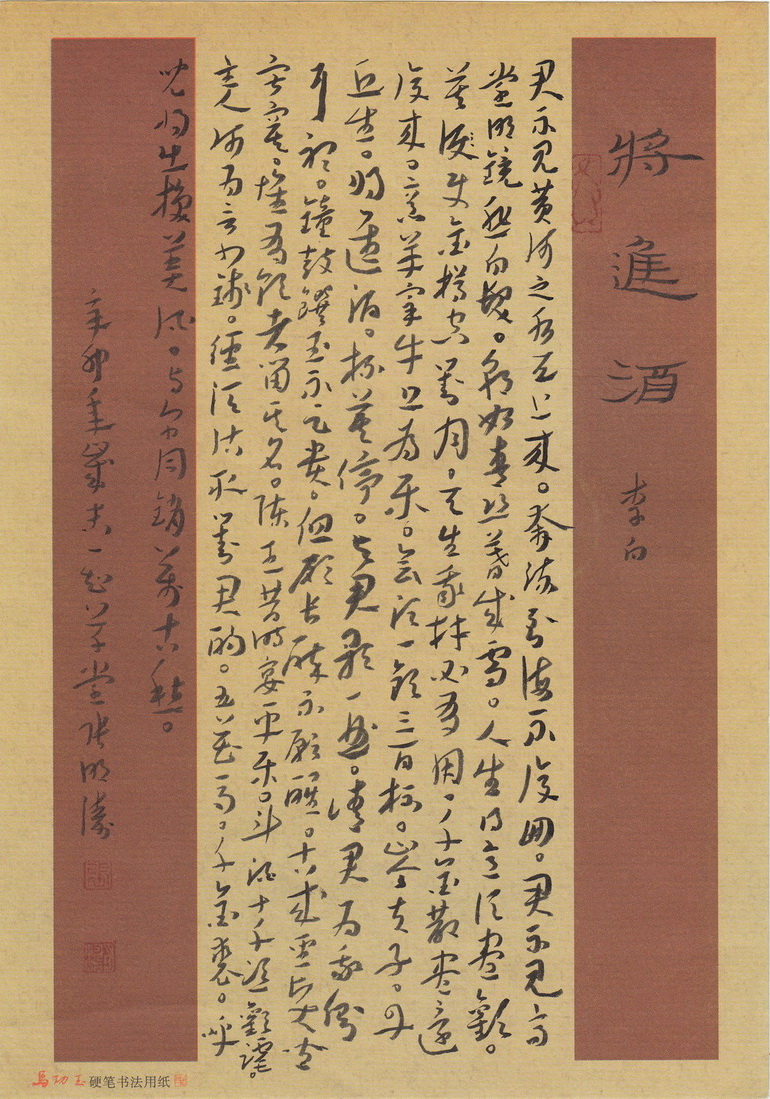 將進酒
李白
君不见黄河之水天上来。奔流到海不復回。君不见高
堂明镜悲白髮。朝如青丝暮成雪。人生得意须尽欢。
莫使金樽空对月。天生我材必有用。千金散尽还
復来。烹羊宰牛且为乐。会须一饮三百杯。岑夫子。丹
丘生。将进酒。杯莫停。与君歌一曲。请君为我倾
耳听。鐘鼓饌玉不足贵。但愿长醉不愿醒。古来圣贤皆
寂寞。惟有饮者留其名。陈王昔时宴平乐。斗酒十千恣歡謔。
主人何为言少钱。径须沽取对君酌。五花马。千金裘。呼
儿将出换美酒。与尔同销万古愁。
辛卯年岁 一 草堂张明涛
硬笔书法用纸